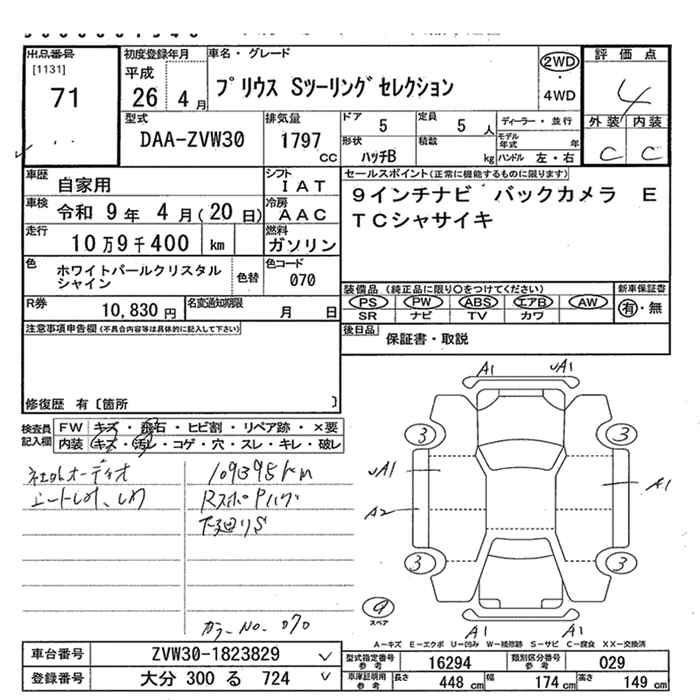 出品番号
[1131]
71
初度登録年月
平成
26年 4月
車名・グレード
プリウス Sツーリングセレクション
2WD
・
4WD
評価点
4
外装 内装
C C
型式
DAA-ZVW30
排気量
1797
cc
ドア 5
定員 5人
ディーラー・並行
形状 ハッチB
積載 kg
モデル年式 年
ハンドル 左・右
車歴
自家用
シフト
IAT
セールスポイント(正常に機能するものに限ります)
9インチナビ バックカメラ E
TCシャサイキ
車検 令和 9年 4月(20日)
冷房
AAC
走行 10万9千400 km
燃料
ガソリン
色
ホワイトパールクリスタル
シャイン
色替
色コード
070
装備品 (純正品に限り○をつけてください)
PS PW ABS エアB AW
SR ナビ TV カワ
新車保証書
有・無
R券 10,830円
名変通知期限 月 日
後日品 保証書・取説
注意事項申告欄(不具合内容等は具体的に記入して下さい)
修復歴 有〔箇所 〕
検査員
記入欄
FW キズ・飛石・ヒビ割・リペア跡・×要
内装 キズ・汚レ・コゲ・穴・スレ・キレ・破レ
109395km
下廻りS
カラーNo.070
A1 A1
3 3
A1 A1
A2
3 3
スペア
A-キズ E-エクボ U-凹み W-補修跡 S-サビ C-腐食 XX-交換済
車台番号 ZVW30-1823829
登録番号 大分 300 る 724
型式指定番号
参考
16294
類別区分番号
参考
029
車庫証明用
参考
長さ 448 cm 幅 174 cm 高さ 149 cm